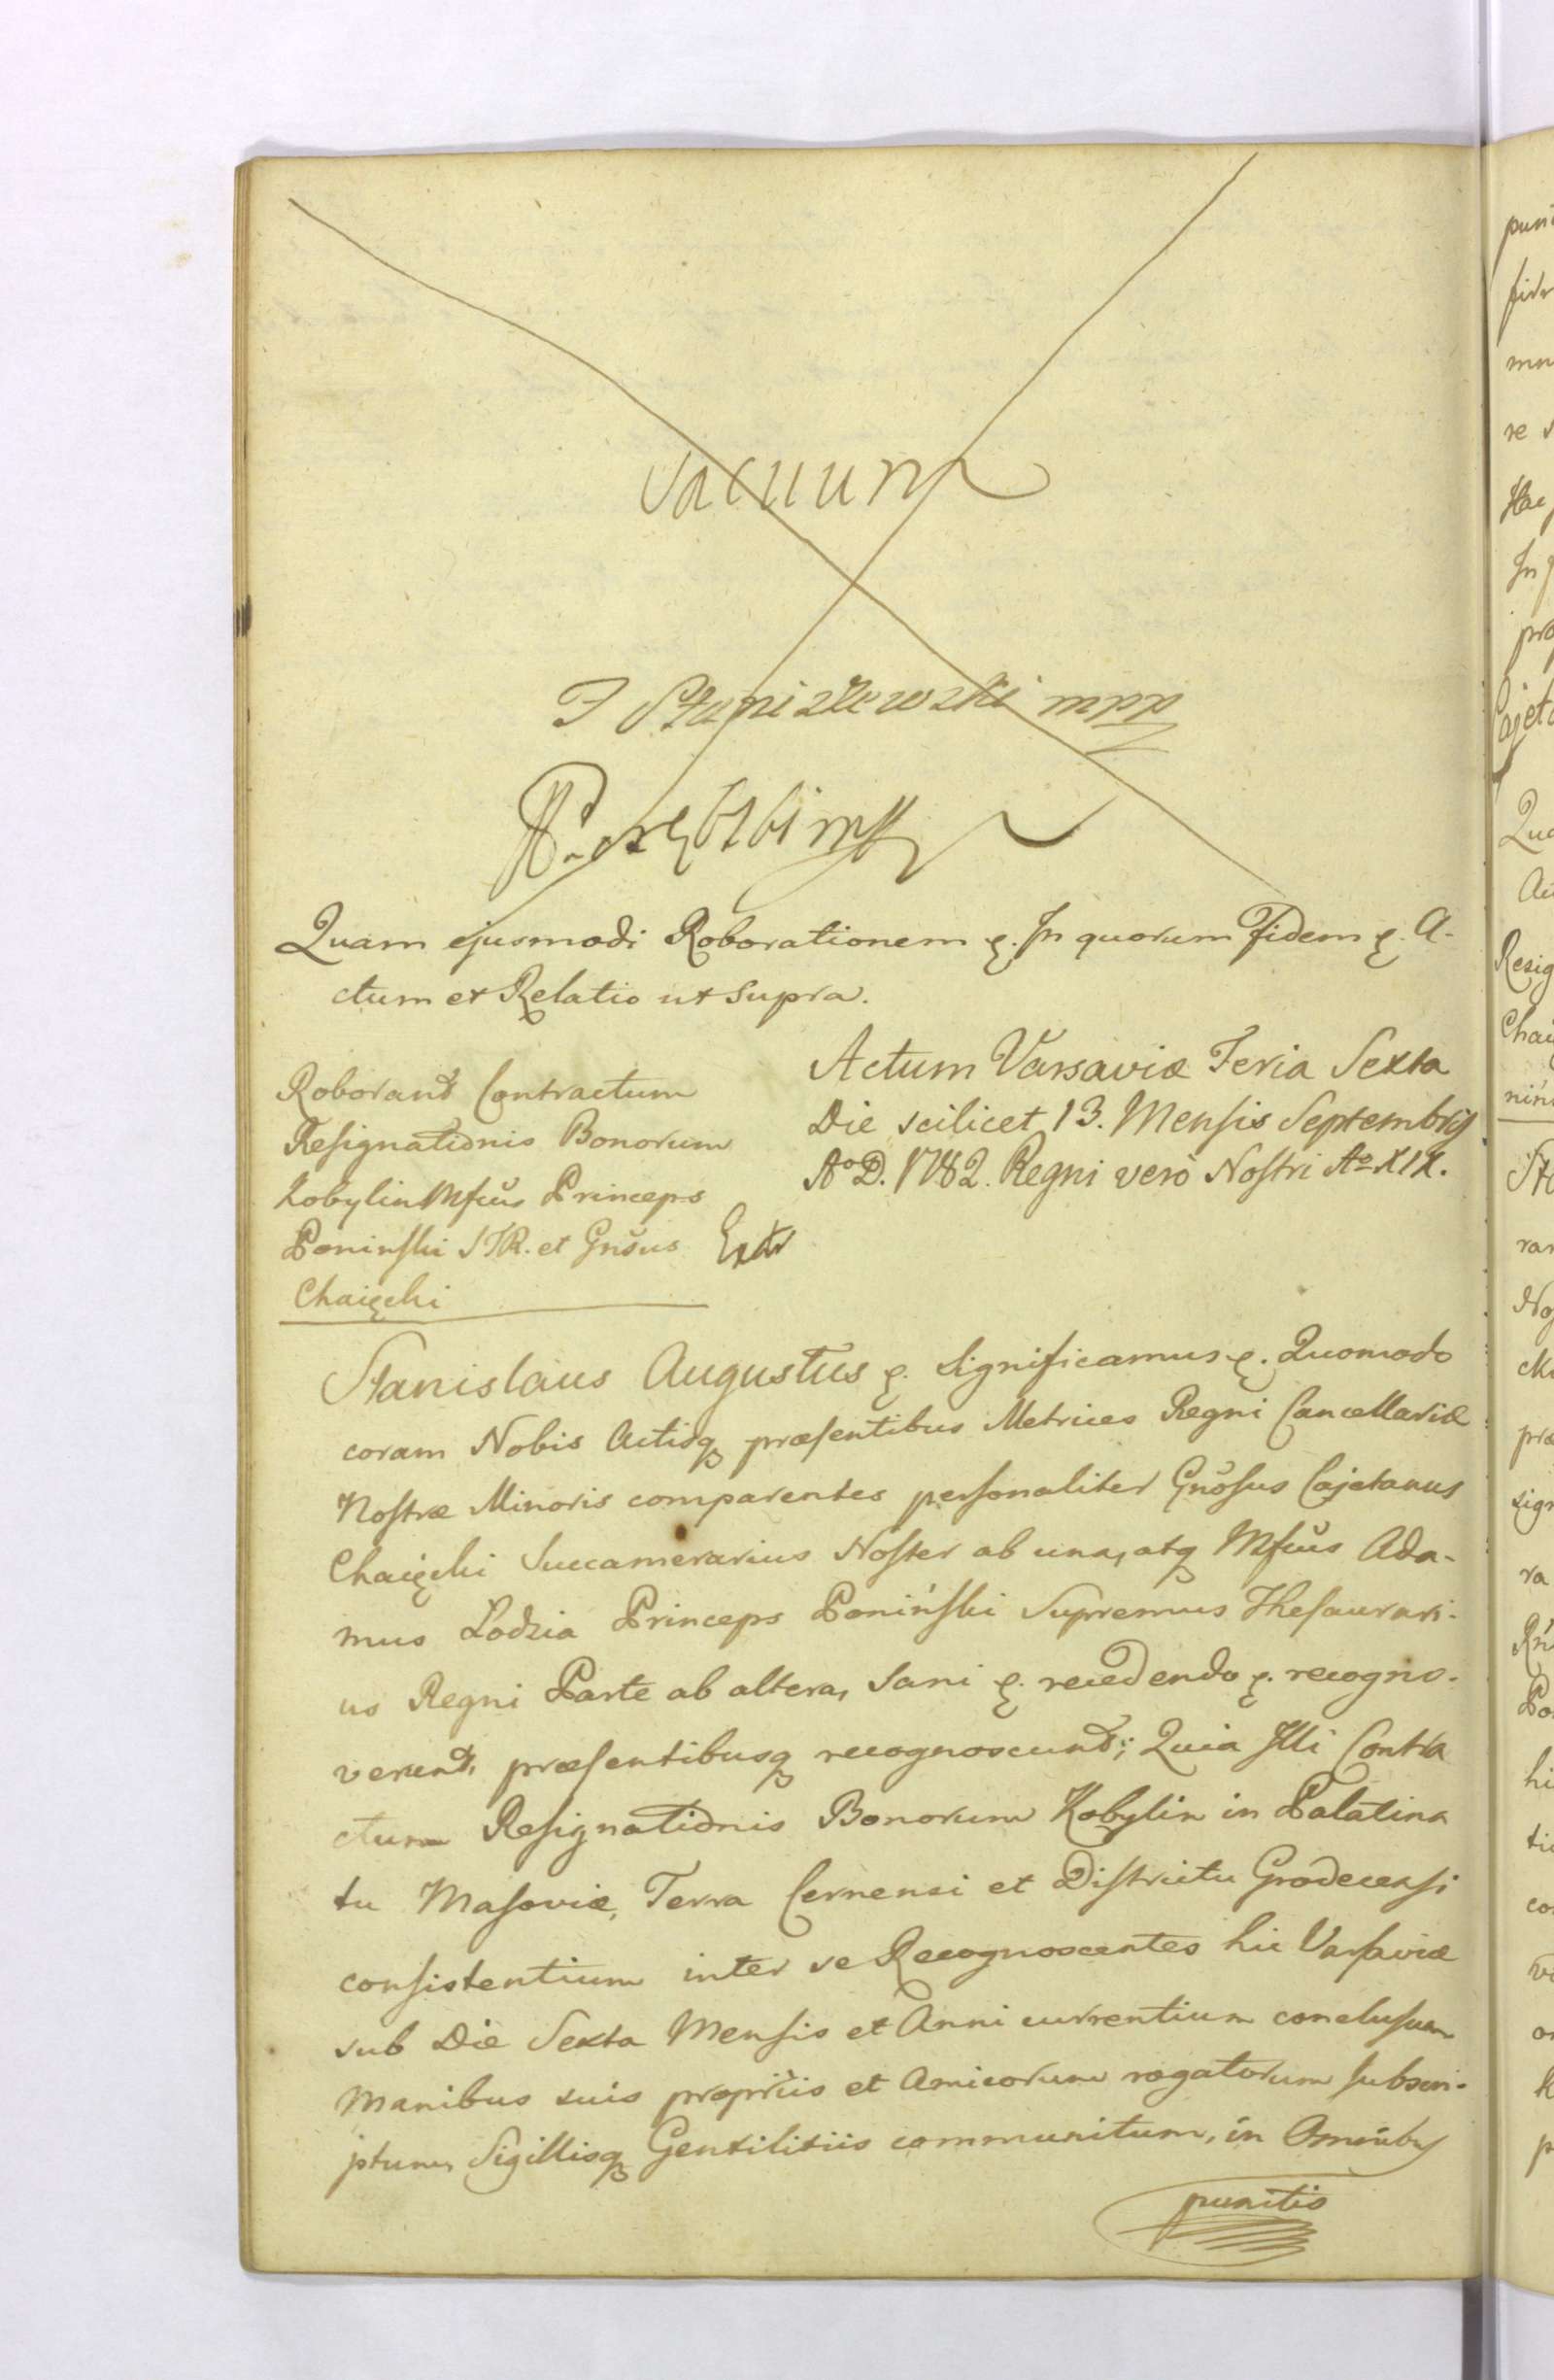 Vacuum
J Staniszewski mpp
Quam ejusmodi Roborationem p. In quorum Fidem p. A-
ctum et Relatio ut Supra.
Roborant Contractum
Resignationis Bonorum
Kobylin Mfcus Princeps
Poninski STR. et Gnsus
Chaięcki
Extr
Actum Varsaviæ Feria Sexta
Die scilicet 13. Mensis Septembris
Aº D. 1782. Regni verò Nostri Aº XIX.
Stanislaus Augustus p. Significamus p. Quomodo
coram Nobis Actisq præsentibus Metrices Regni Cancellariæ
Nostræ Minoris comparentes personaliter Gnosus Cajetanus
Chaięcki Succamerarius Noster ab una, atq Mfcus Ada-
mus Lodzia Princeps Poniński Supremus Thesaurari-
us Regni Parte ab altera, Sani p. recedendo p. recogno-
verunt, præsentibusq recognoscunt; Quia Illi Contra
ctum Resignationis Bonorum Kobylin in Palatina
tu Masoviæ, Terra Cernensi et Districtu Grodecensi
consistentium inter se Recognoscentes hic Varsaviæ
sub Die Sexta Mensis et Anni currentium conclusum
Manibus suis propriis et Amicorum rogatorum subscri-
ptum, Sigillisq Gentilitiis communitum, in Omnibus
punctis